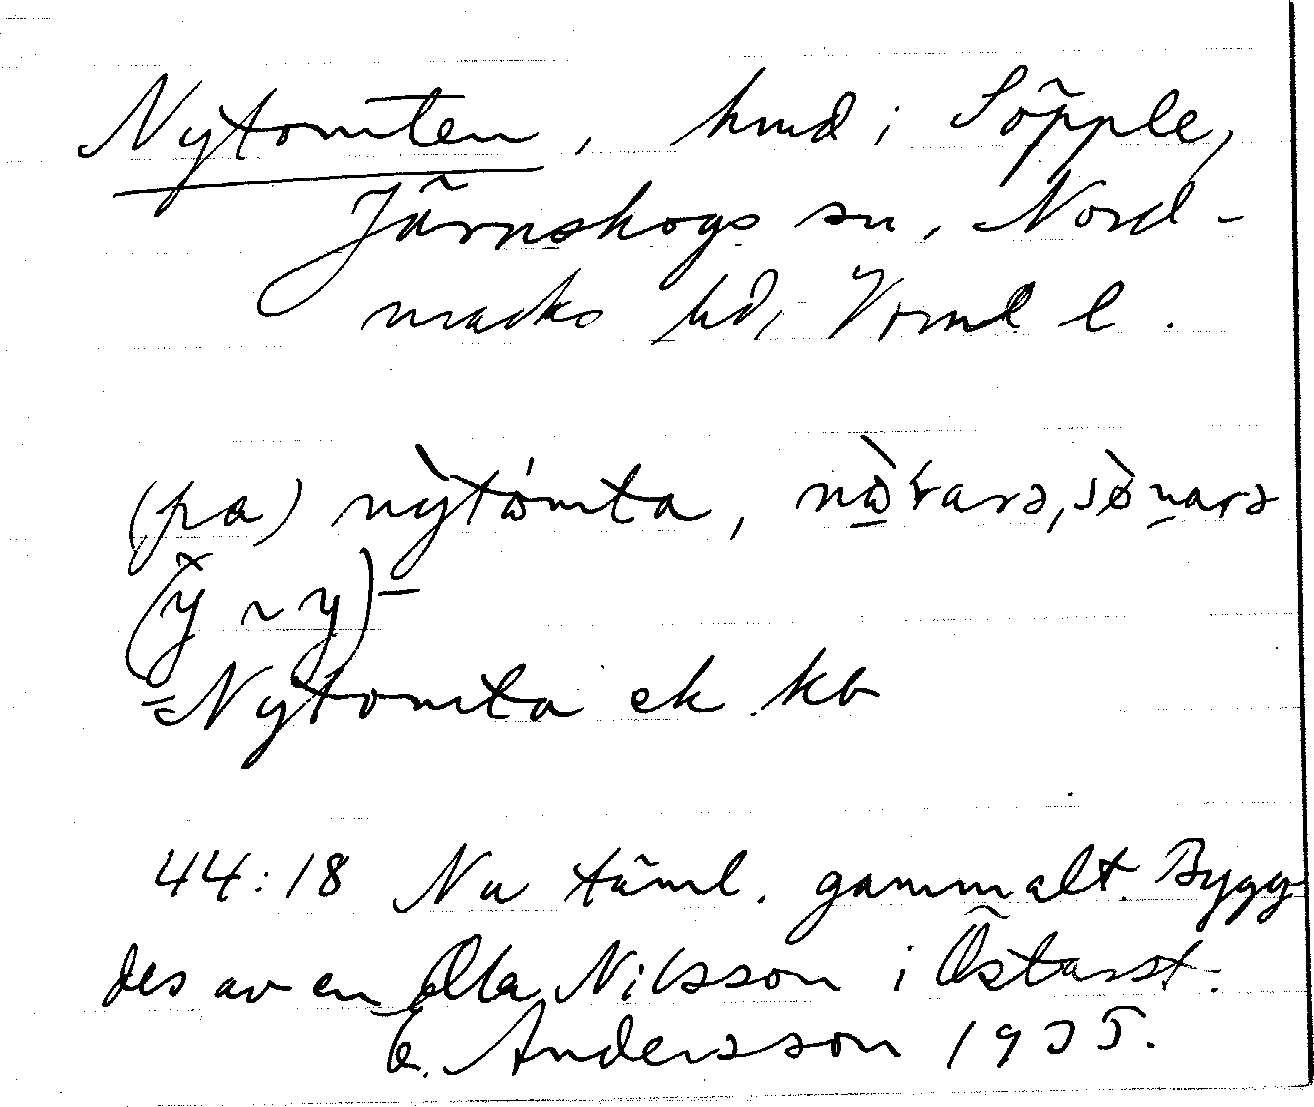 Nytomten, hmd i Söpple,
Järnskogs sn, Nord-
marks hd, Vrml l.
(pa) nỳtómta,
(y̆ ~ y) =
= Nytomta ek kb
44:18 Nu täml. gammalt. Bygg-
des av en Olla Nilsson i Östarst.
E. Andersson 1935.